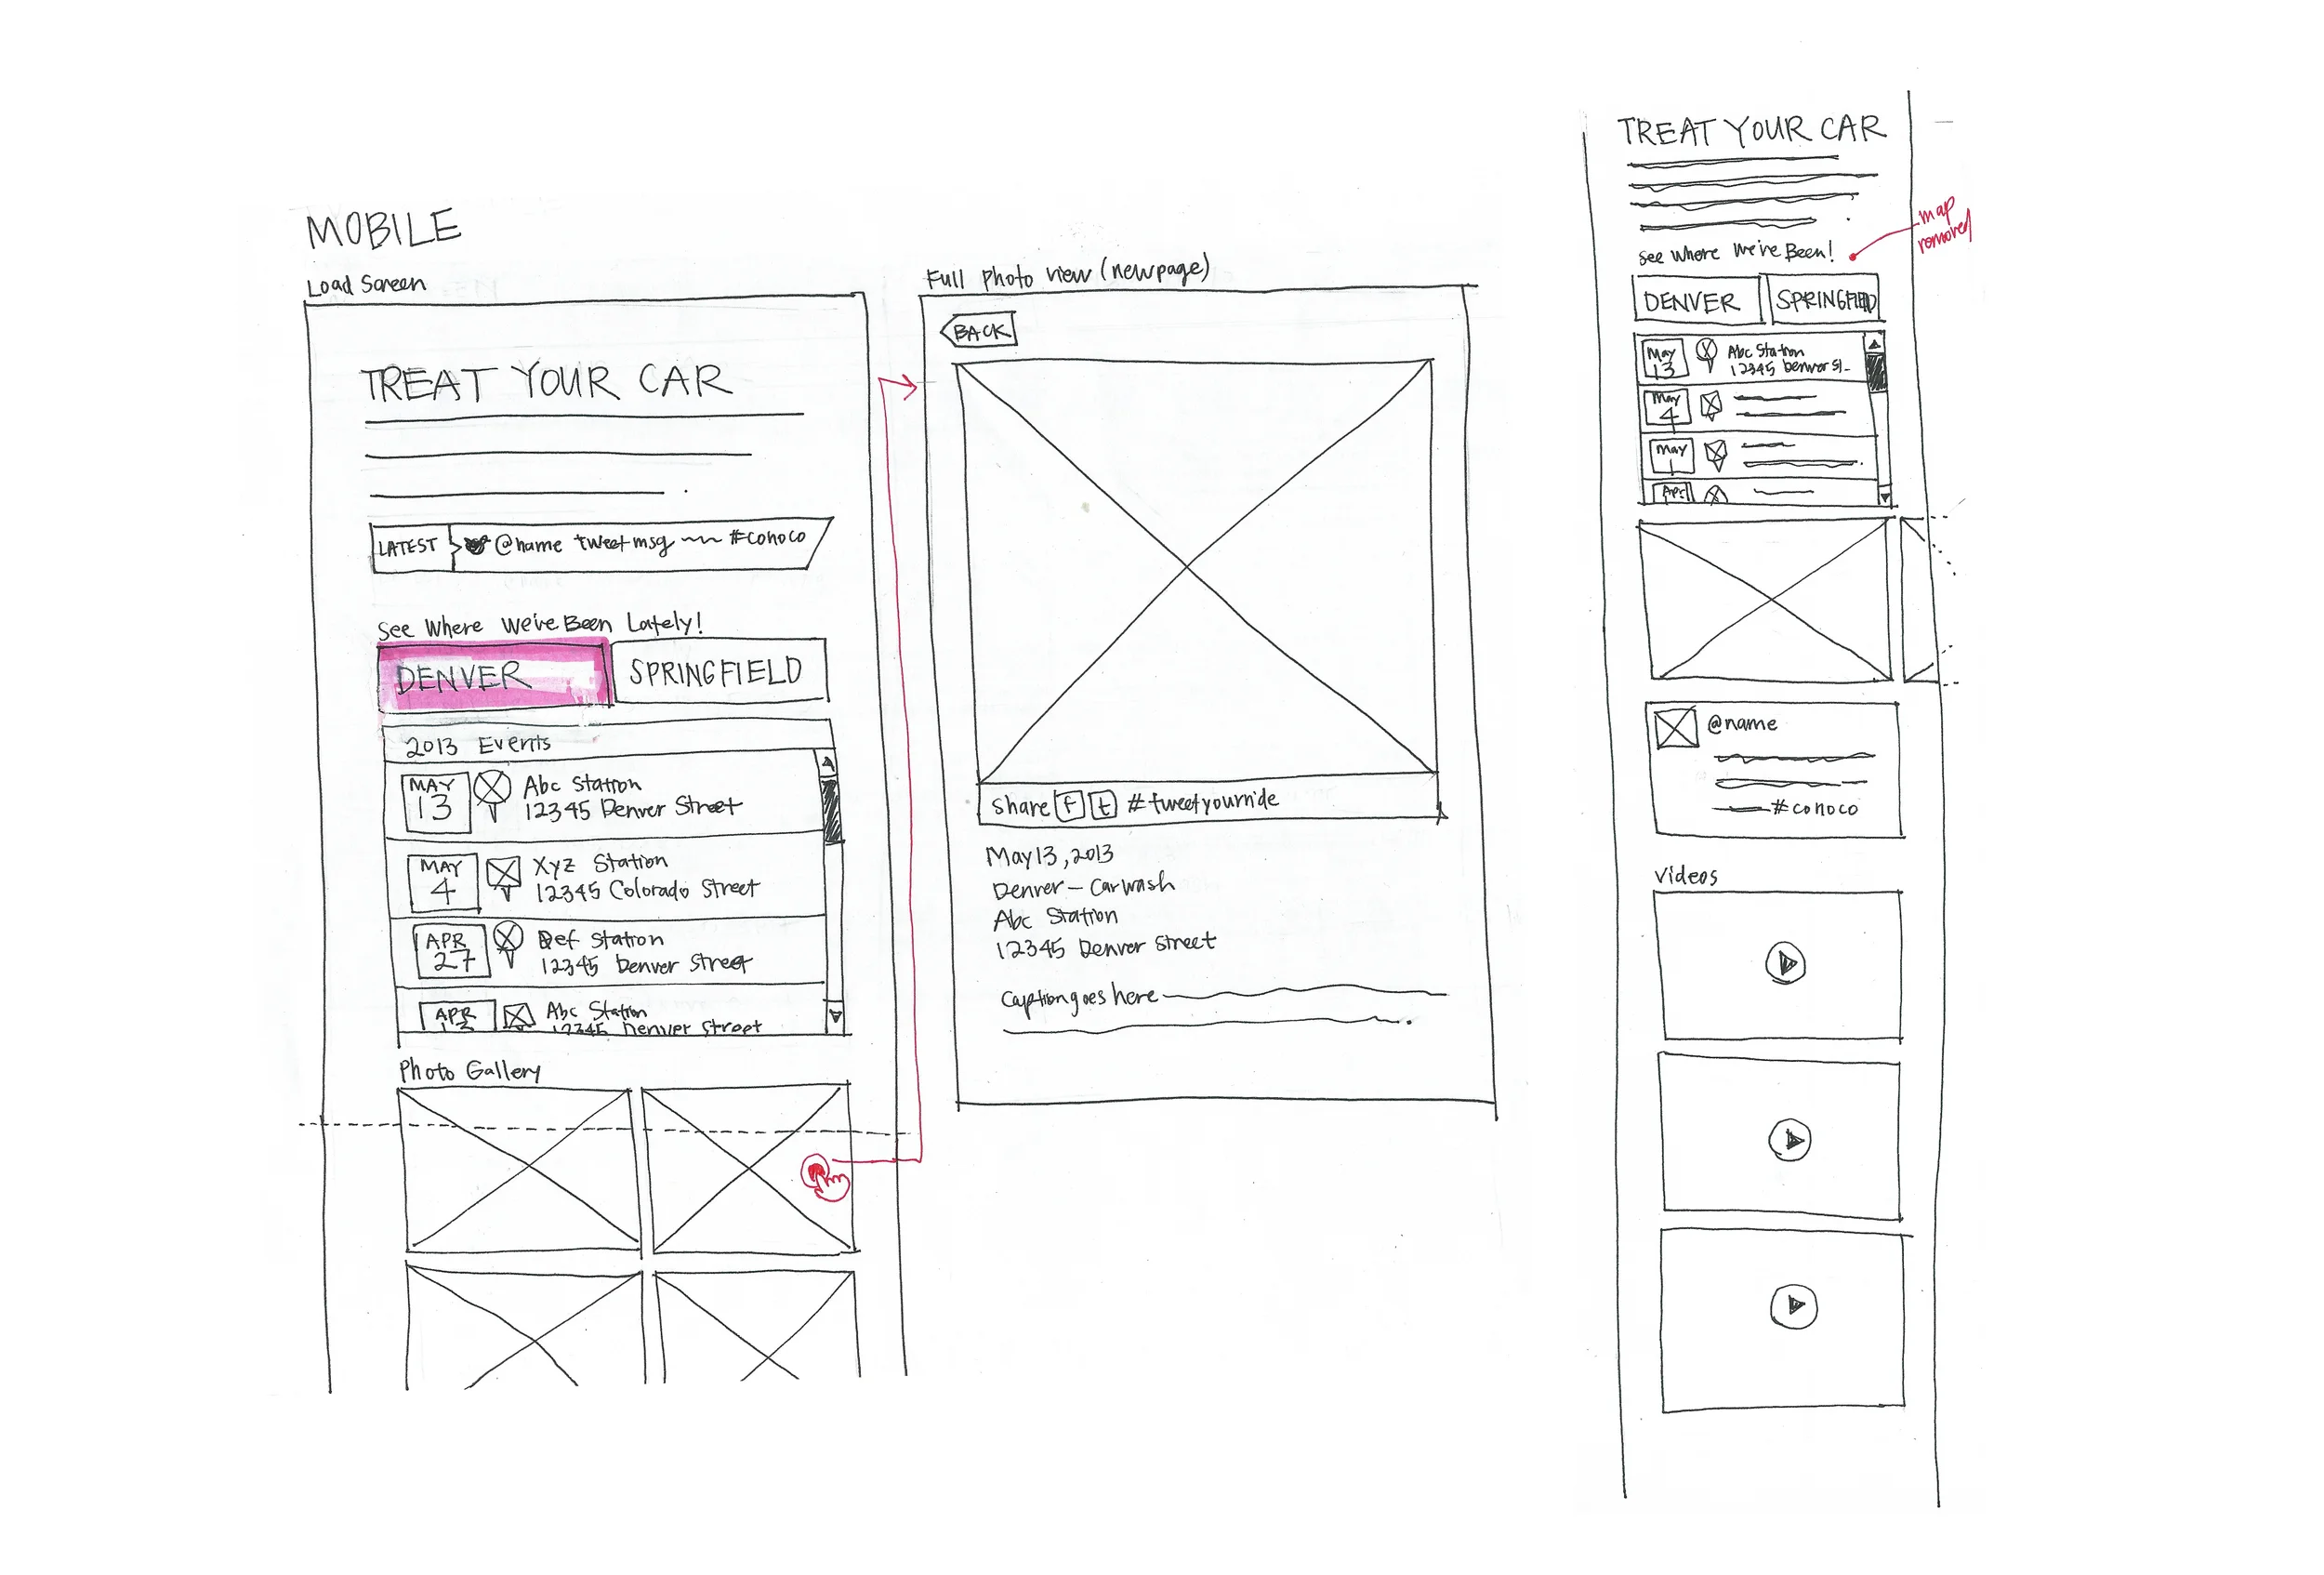 MOBILE
Load Screen
TREAT YOUR CAR
LATEST @name tweet msg #conoco
See Where We've Been Lately!
DENVER SPRINGFIELD
2013 Events
MAY 13 Abc Station
12345 Denver Street
MAY 4 Xyz Station
12345 Colorado Street
APR 27 Def Station
12345 Denver Street
APR Abc Station
12345 Denver Street
Photo Gallery
Full Photo View (new page)
BACK
Share f t #tweetyourride
May 13, 2013
Denver - Carwash
Abc Station
12345 Denver Street
Caption goes here
TREAT YOUR CAR
map
removed
See Where We've Been!
DENVER SPRINGFIELD
May 13 Abc Station
12345 Denver St.
May 4
May 1
Apr
@name
#conoco
Videos